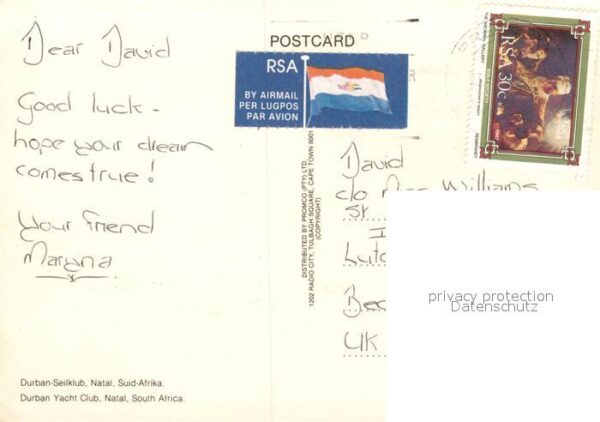 Dear David
Good luck -
hope your dream
comes true!
your friend
Maryna
POSTCARD
RSA
BY AIRMAIL
PER LUGPOS
PAR AVION
DISTRIBUTED BY PROMCO (PTY) LTD.
1202 RADIO CITY, TULBAGH SQUARE, CAPE TOWN 8001
(COPYRIGHT)
RSA 30c
David
c/o Williams
St
UK
privacy protection
Datenschutz
Durban-Seilklub, Natal, Suid-Afrika.
Durban Yacht Club, Natal, South Africa.